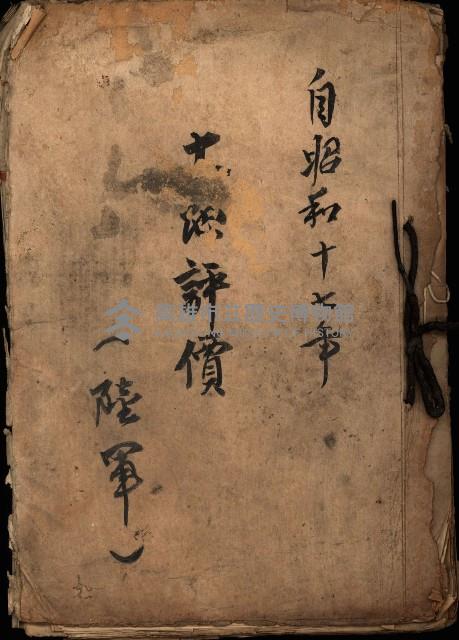 自昭和十七年
評價
(陸軍)
高雄市立歷史博物館